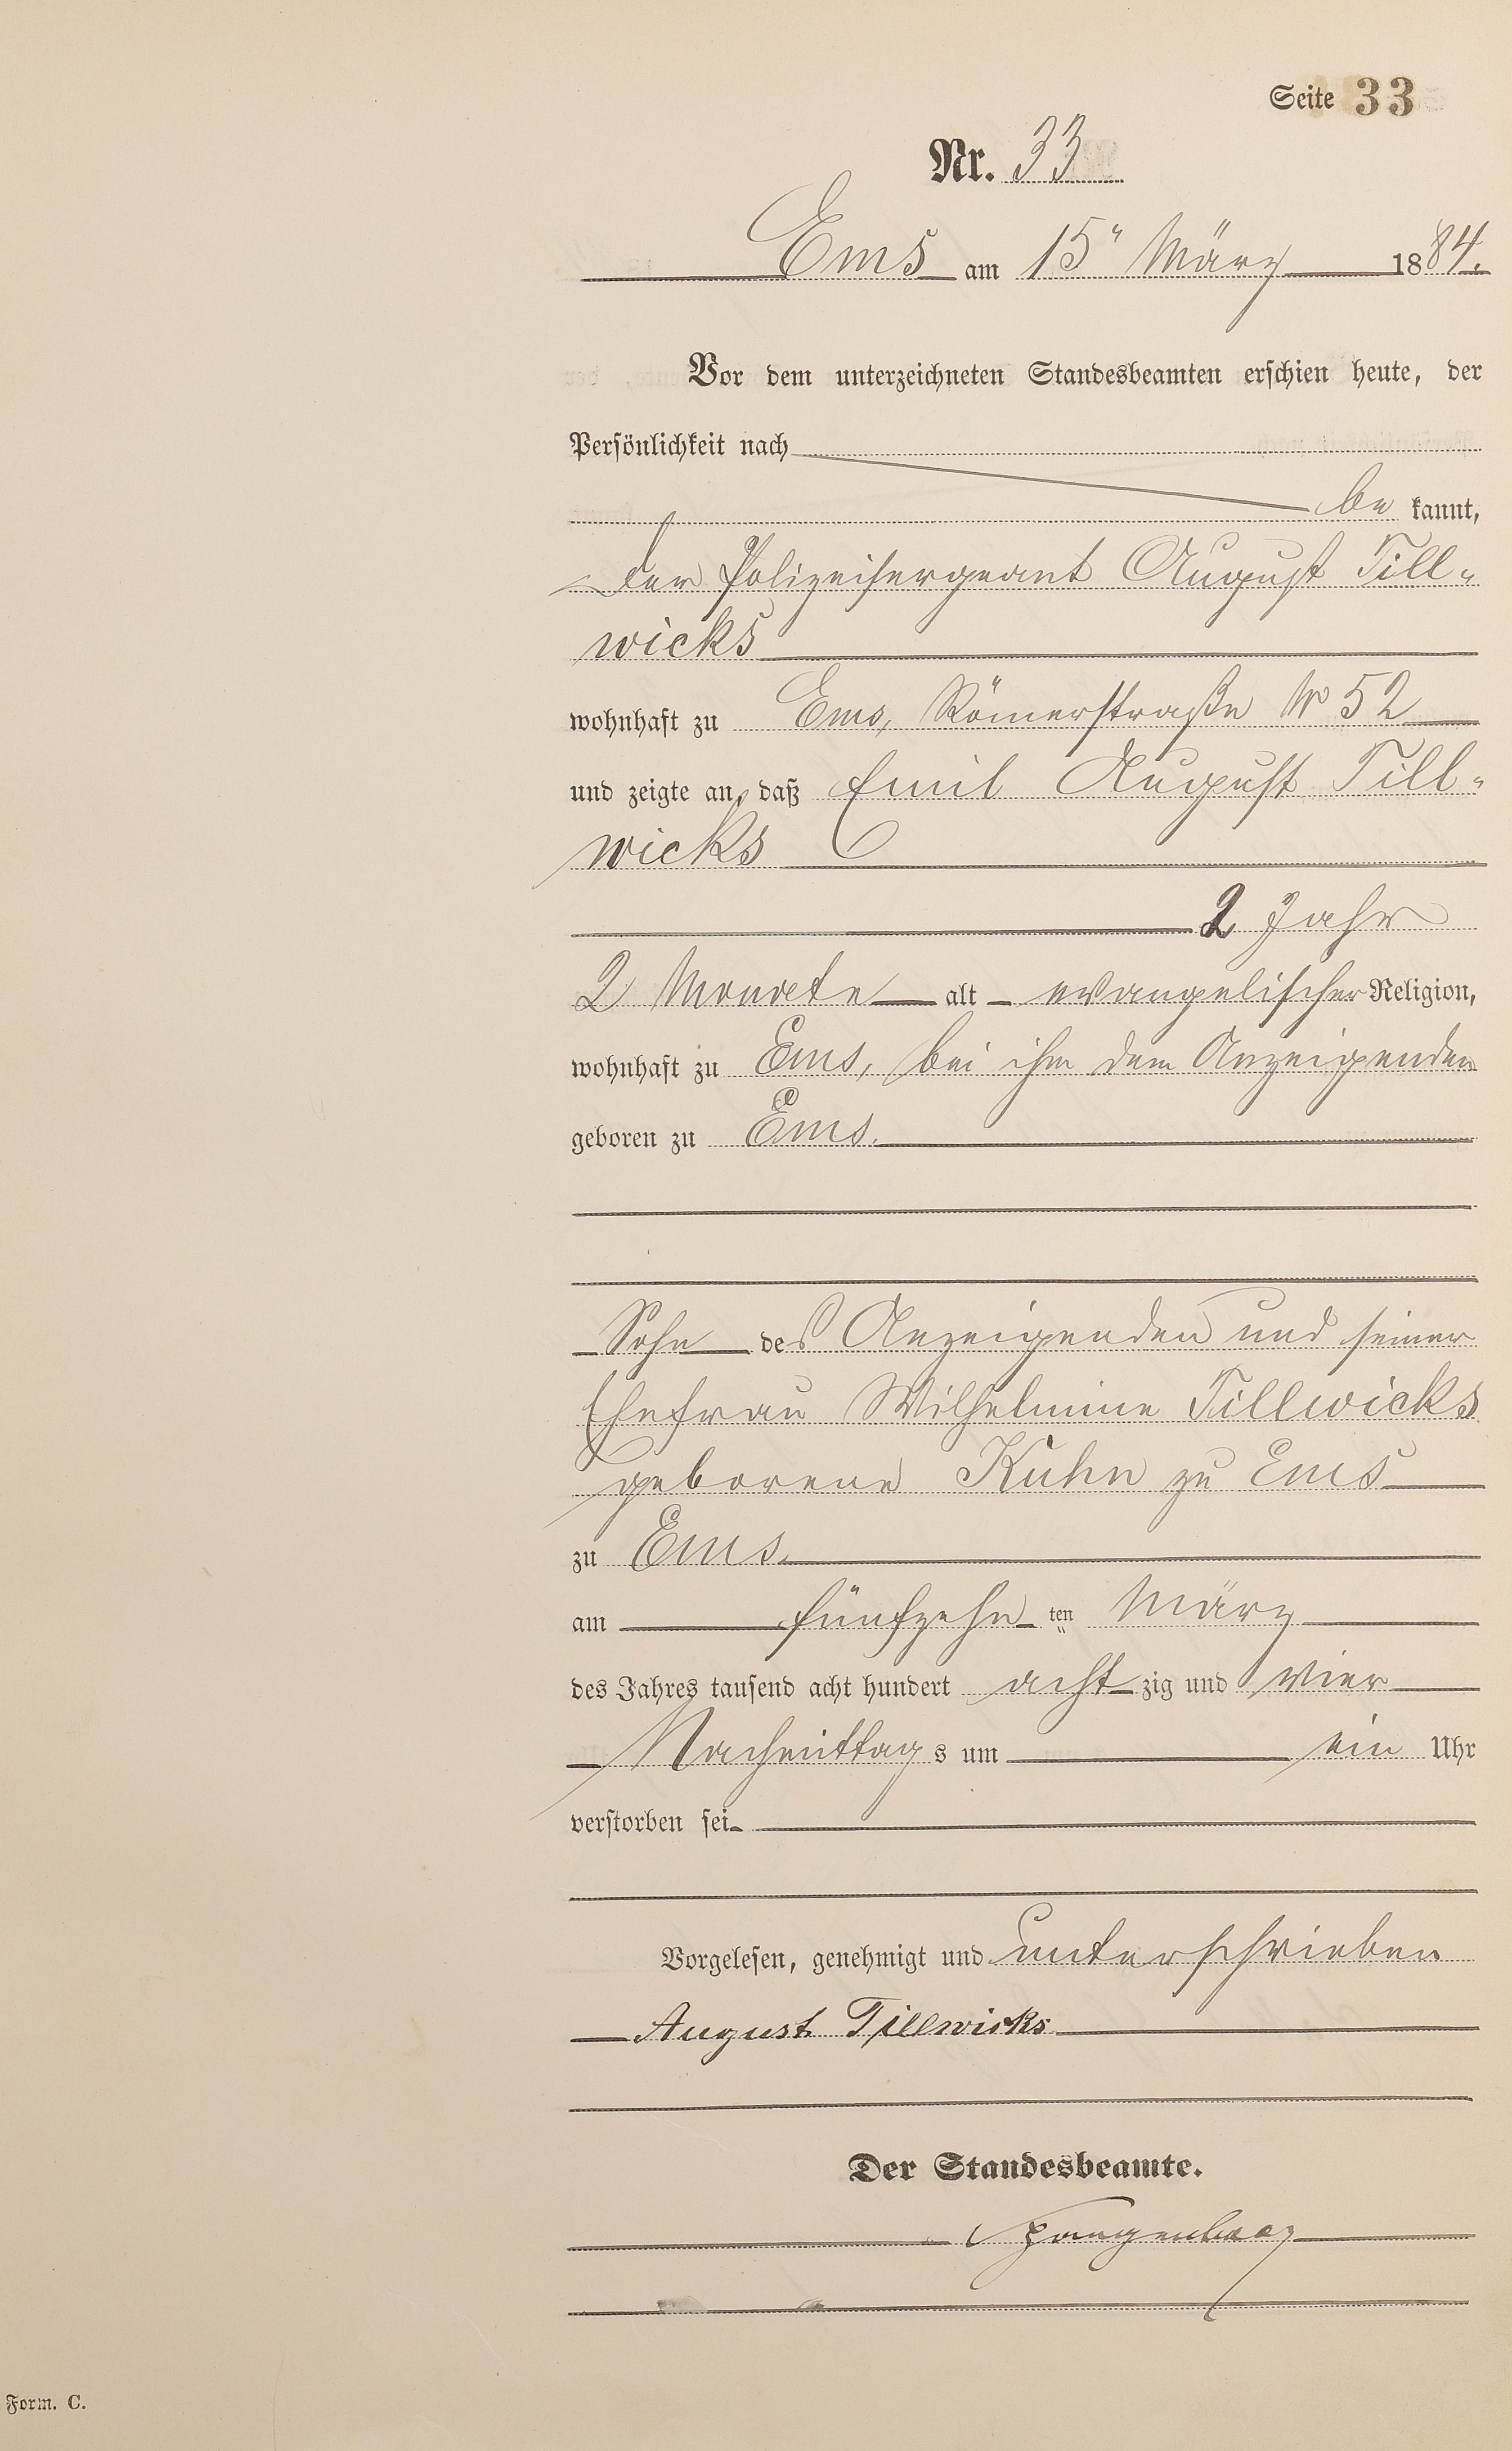 Seite 33
Nr. 33
Ems am 15" März 1884.
Vor dem unterzeichneten Standesbeamten erschien heute, der
Persönlichkeit nach
be kannt,
der Polizeisergeant August Till-
wicks
wohnhaft zu Ems, Römerstraße No 52
und zeigte an, daß Emil August Till-
wicks
2 Jahr
2 Monate alt evangelischer Religion,
wohnhaft zu Ems, bei ihm dem Anzeigenden
geboren zu Ems.
Sohn des Anzeigenden und seiner
Ehefrau Wilhelmine Tillwicks
geborene Kuhn zu Ems
zu Ems.
am fünfzehn ten März
des Jahres tausend acht hundert acht zig und vier
Nachmittag s um ein Uhr
verstorben sei
Vorgelesen, genehmigt und unterschrieben
August Tillwicks
Der Standesbeamte.
Spangenberg
Form. C.